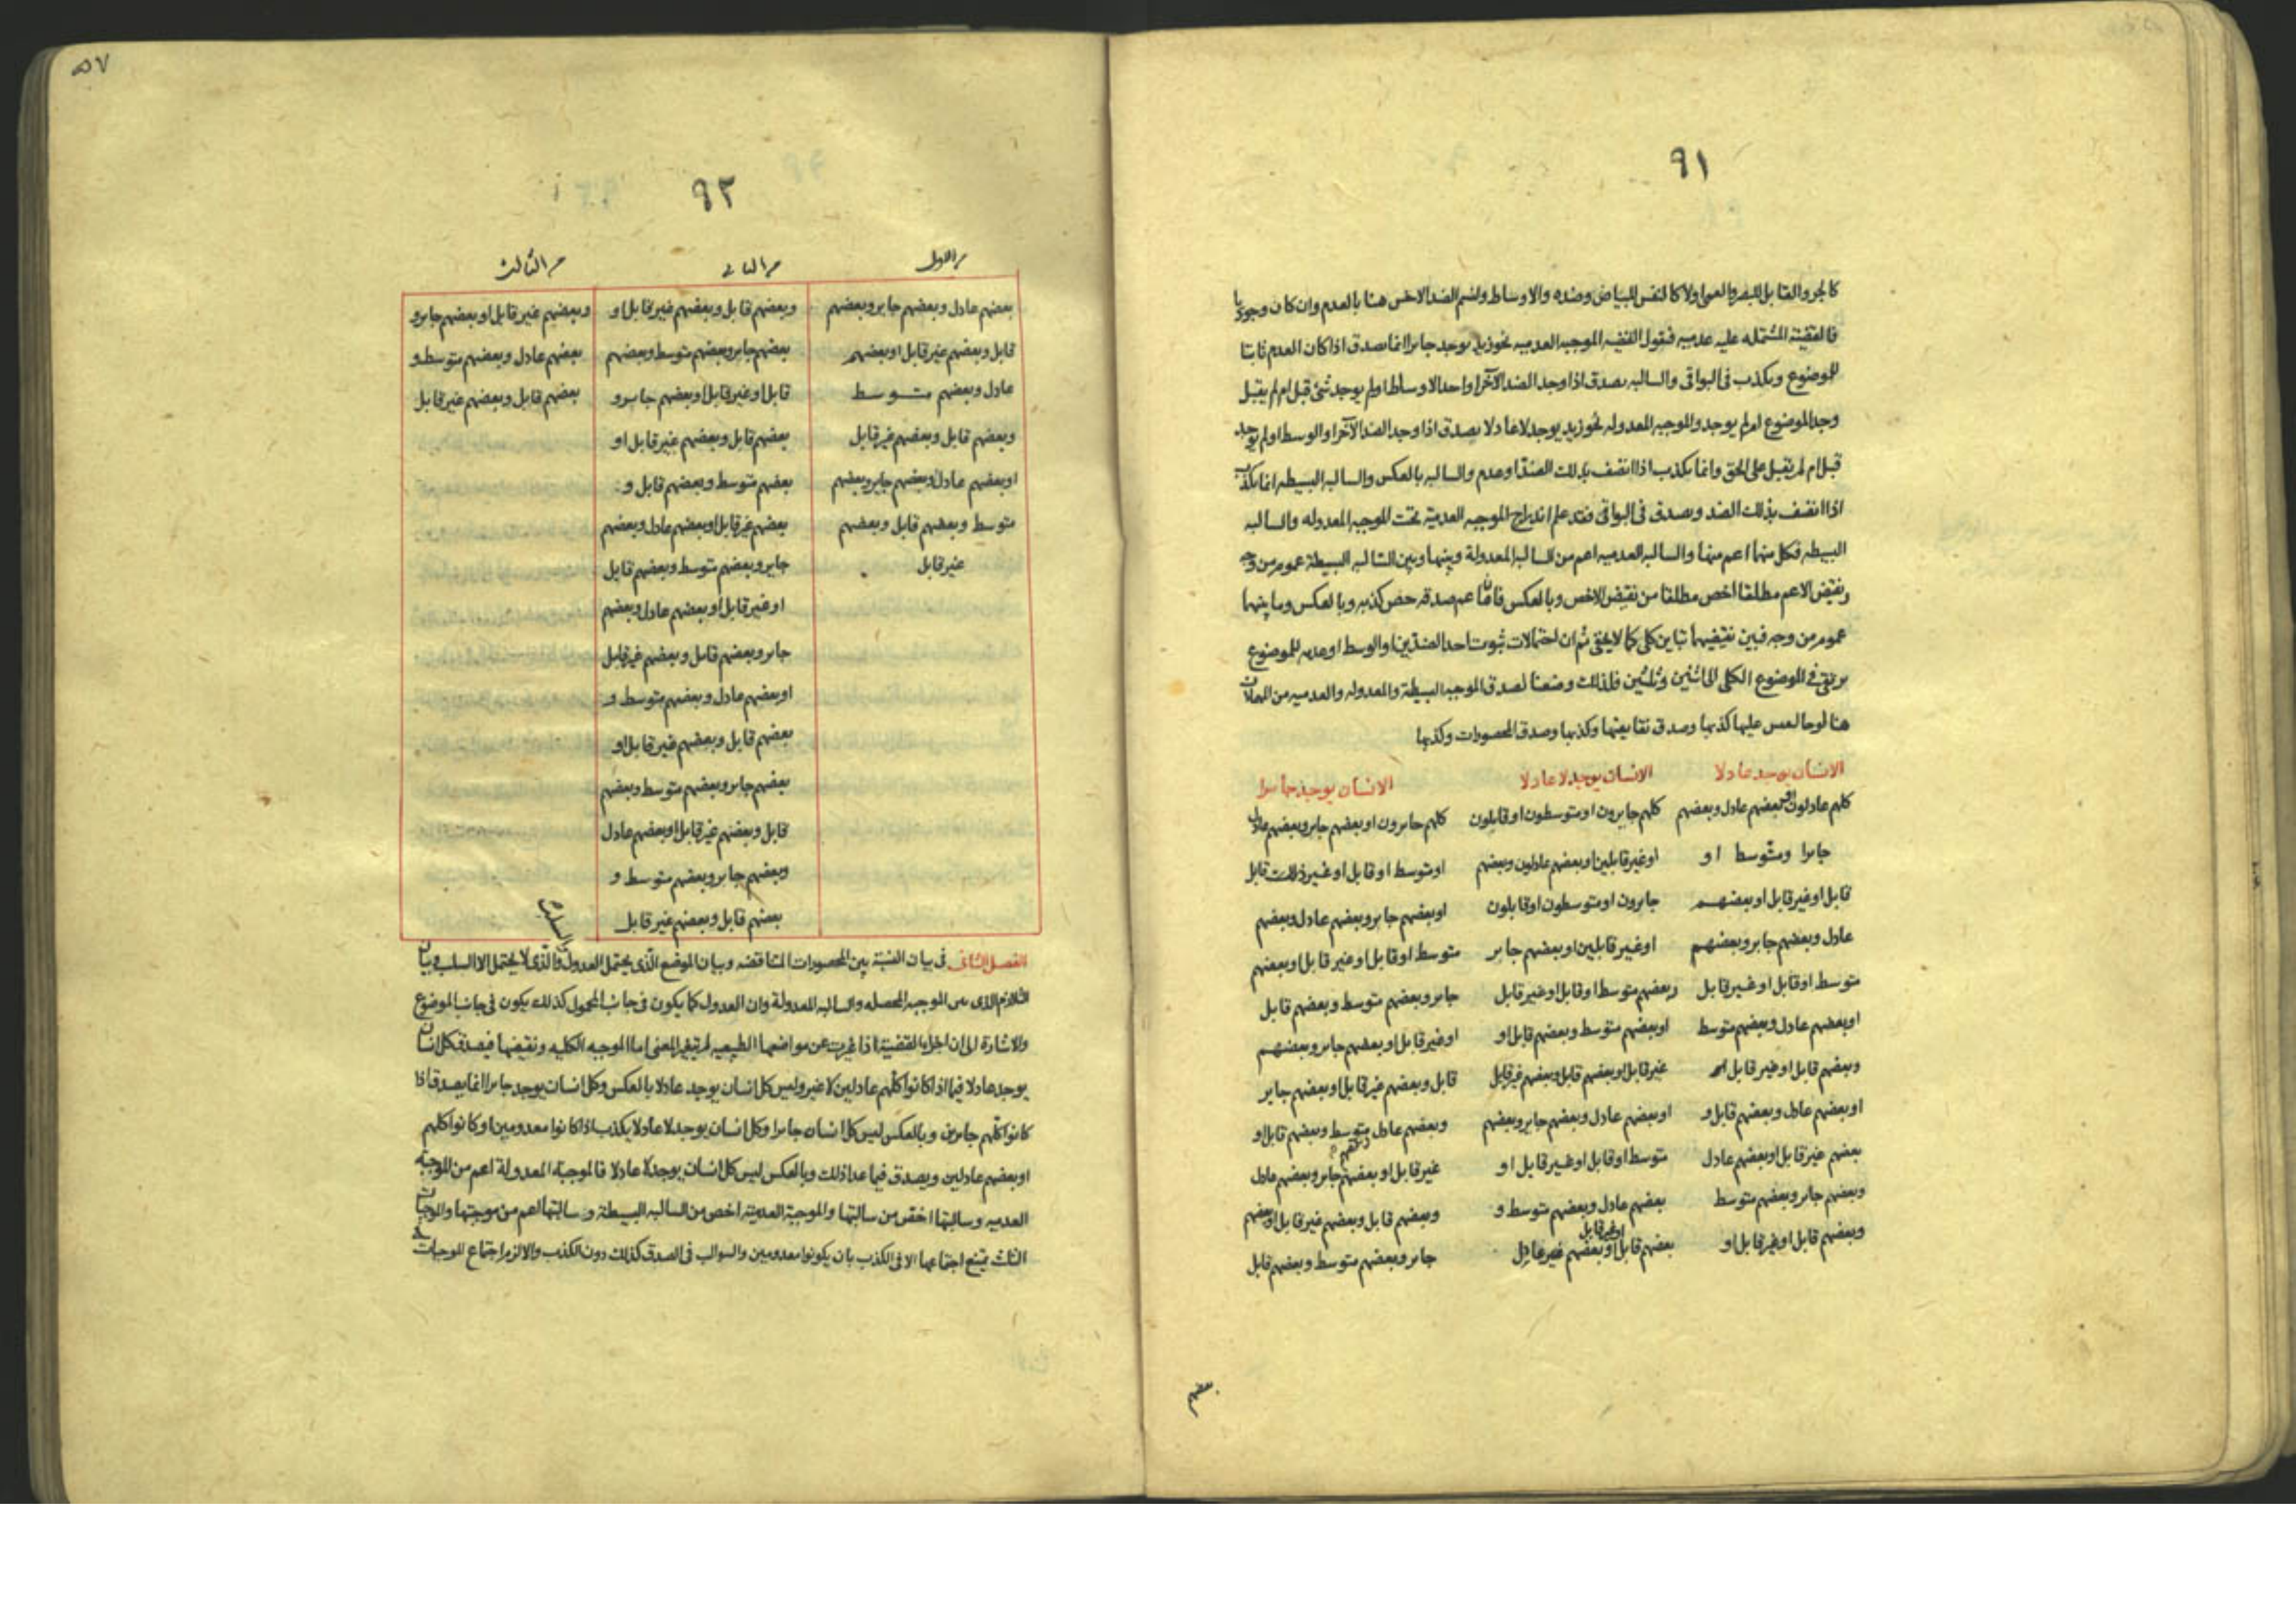 ٩١
كالجر والقابل للبصر والعمى اولا كالنفس للبياض وضده والاوساط ولنسم الضد الاخس هنا بالعدم وان كان وجوديا
فالقضية المشتمله عليه عدميه فنقول القضيه الموجبه العدميه نحو زيد يوجد جابرا انما يصدق اذا كان العدم ثابتا
للموضوع ويكذب فى البواقى والسالبه يصدق اذا وجد الضد الآخر او احد الاوساط او لم يوجد شئ قبل ام لم يقبل
وجد الموضوع ام لم يوجد والموجبه المعدوله نحو زيد يوجد لا عادلا يصدق اذا وجد الضد الآخر او الوسط او لم يوجد
قبل ام لم يقبل على الحق وانما يكذب اذا اتصف بذلك الضد او عدم والسالبه بالعكس والسالبه البسيطه انما يكذب
اذا اتصف بذلك الضد ويصدق فى البواقى فقد علم اندراج الموجبه العدمية تحت الموجبه المعدوله والسالبه
البسيطه فكل منهما اعم منها والسالبه العدميه اعم من السالبه المعدولة وبينها وبين السالبه البسيطة عموم من وجه
ونقيض الاعم مطلقا اخص مطلقا من نقيض الاخص وبالعكس فان ما عم صدقه خص كذبه وبالعكس وما بينهما
عموم من وجه فبين نقيضيهما تباين كلى كما لا يخفى ثم ان احتمالات ثبوت احد الضدين او الوسط او عدمه للموضوع
يرتقى فى الموضوع الكلى الى اثنين وثلثين فلذلك وضعنا لصدق الموجبه البسيطة والمعدوله والعدميه من المهملات
هنا لوحا لعس عليها كذبها وصدق نقايضها وكذبها وصدق المحصورات وكذبها
الانسان يوجد عادلا الانسان يوجد لا عادلا الانسان يوجد جابرا
كلهم عادلون او بعضهم عادل وبعضهم كلهم جايرون او متوسطون او قابلون كلهم جابرون او بعضهم جابر وبعضهم عادل
جابرا ومتوسطا او او غير قابلين او بعضهم عادلون وبعضهم او متوسط او قابل او غير ذلك قابل
قابل او غير قابل او بعضهم جابرون او متوسطون او قابلون او بعضهم جابر وبعضهم عادل وبعضهم
عادل وبعضهم جابر وبعضهم او غير قابلين او بعضهم جابر متوسط او قابل او غير قابل او بعضهم
متوسط او قابل او غير قابل وبعضهم متوسط او قابل او غير قابل جابر وبعضهم متوسط وبعضهم قابل
او بعضهم عادل وبعضهم متوسط او بعضهم متوسط وبعضهم قابل او او غير قابل او بعضهم جابر وبعضهم
وبعضهم قابل او غير قابل او غير قابل او بعضهم قابل وبعضهم غير قابل قابل وبعضهم غير قابل او بعضهم جابر
او بعضهم عادل وبعضهم قابل و او بعضهم عادل وبعضهم جابر وبعضهم وبعضهم عادل متوسط وبعضهم قابل او
بعضهم غير قابل او بعضهم عادل متوسط او قابل او غير قابل او غير قابل او بعضهم جابر وبعضهم عادل
وبعضهم جابر وبعضهم متوسط بعضهم عادل وبعضهم متوسط و وبعضهم قابل وبعضهم غير قابل او بعضهم
وبعضهم قابل او غير قابل او بعضهم قابل او غير قابل او بعضهم غير عادل جابر وبعضهم متوسط وبعضهم قابل
بعضهم
٥٧
٩٢
م الاول م الثانى م الثالث
بعضهم عادل وبعضهم جابر وبعضهم وبعضهم قابل وبعضهم غير قابل او وبعضهم غير قابل او بعضهم جابر و
قابل وبعضهم غير قابل او بعضهم بعضهم جابر وبعضهم متوسط وبعضهم بعضهم عادل وبعضهم متوسط و
عادل وبعضهم متوسط قابل او غير قابل او بعضهم جابر و بعضهم قابل وبعضهم غير قابل
وبعضهم قابل وبعضهم غير قابل بعضهم قابل وبعضهم غير قابل او
او بعضهم عادل وبعضهم جابر وبعضهم بعضهم متوسط وبعضهم قابل و
متوسط وبعضهم قابل وبعضهم بعضهم غير قابل او بعضهم عادل وبعضهم
غير قابل جابر وبعضهم متوسط وبعضهم قابل
او غير قابل او بعضهم عادل وبعضهم
جابر وبعضهم قابل وبعضهم غير قابل
او بعضهم عادل وبعضهم متوسط و
بعضهم قابل وبعضهم غير قابل او
بعضهم جابر وبعضهم متوسط وبعضهم
قابل وبعضهم غير قابل او بعضهم عادل
وبعضهم جابر وبعضهم متوسط و
بعضهم قابل وبعضهم غير قابل
الفصل الثانى فى بيان النسبة بين المحصورات المتناقضه وبيان الموضع الذى يحتمل العدول والسلب والذى لا يحتمل الا السلب وبيان
التلازم الذى بين الموجبه المحصله والسالبه المعدولة وان العدول كما يكون فى جانب المحمول كذلك يكون فى جانب الموضوع
والاشارة الى ان اجزاء القضية اذا غيرت عن مواضعها الطبيعيه لم يتغير المعنى اما الموجبه الكليه ونقيضها فيصدق كل انسان
يوجد عادلا فيما اذا كانوا كلهم عادلين لا غير وليس كل انسان يوجد عادلا بالعكس وكل انسان يوجد جابرا انما يصدق اذا
كانوا كلهم جابرين وبالعكس ليس كل انسان جابرا وكل انسان يوجد لا عادلا يكذب اذا كانوا معدومين او كانوا كلهم
او بعضهم عادلين ويصدق فيما عدا ذلك وبالعكس ليس كل انسان يوجد لا عادلا فالموجبة المعدولة اعم من الموجبة
العدميه وسالبتها اخص من سالبتها والموجبة العدمية اخص من السالبه البسيطة وسالبتها اعم من موجبتها والموجبات
الثلث يمتنع اجتماعها الا فى الكذب بان يكونوا معدومين والسوالب فى الصدق كذلك دون الكذب والا لزم اجتماع الموجبات